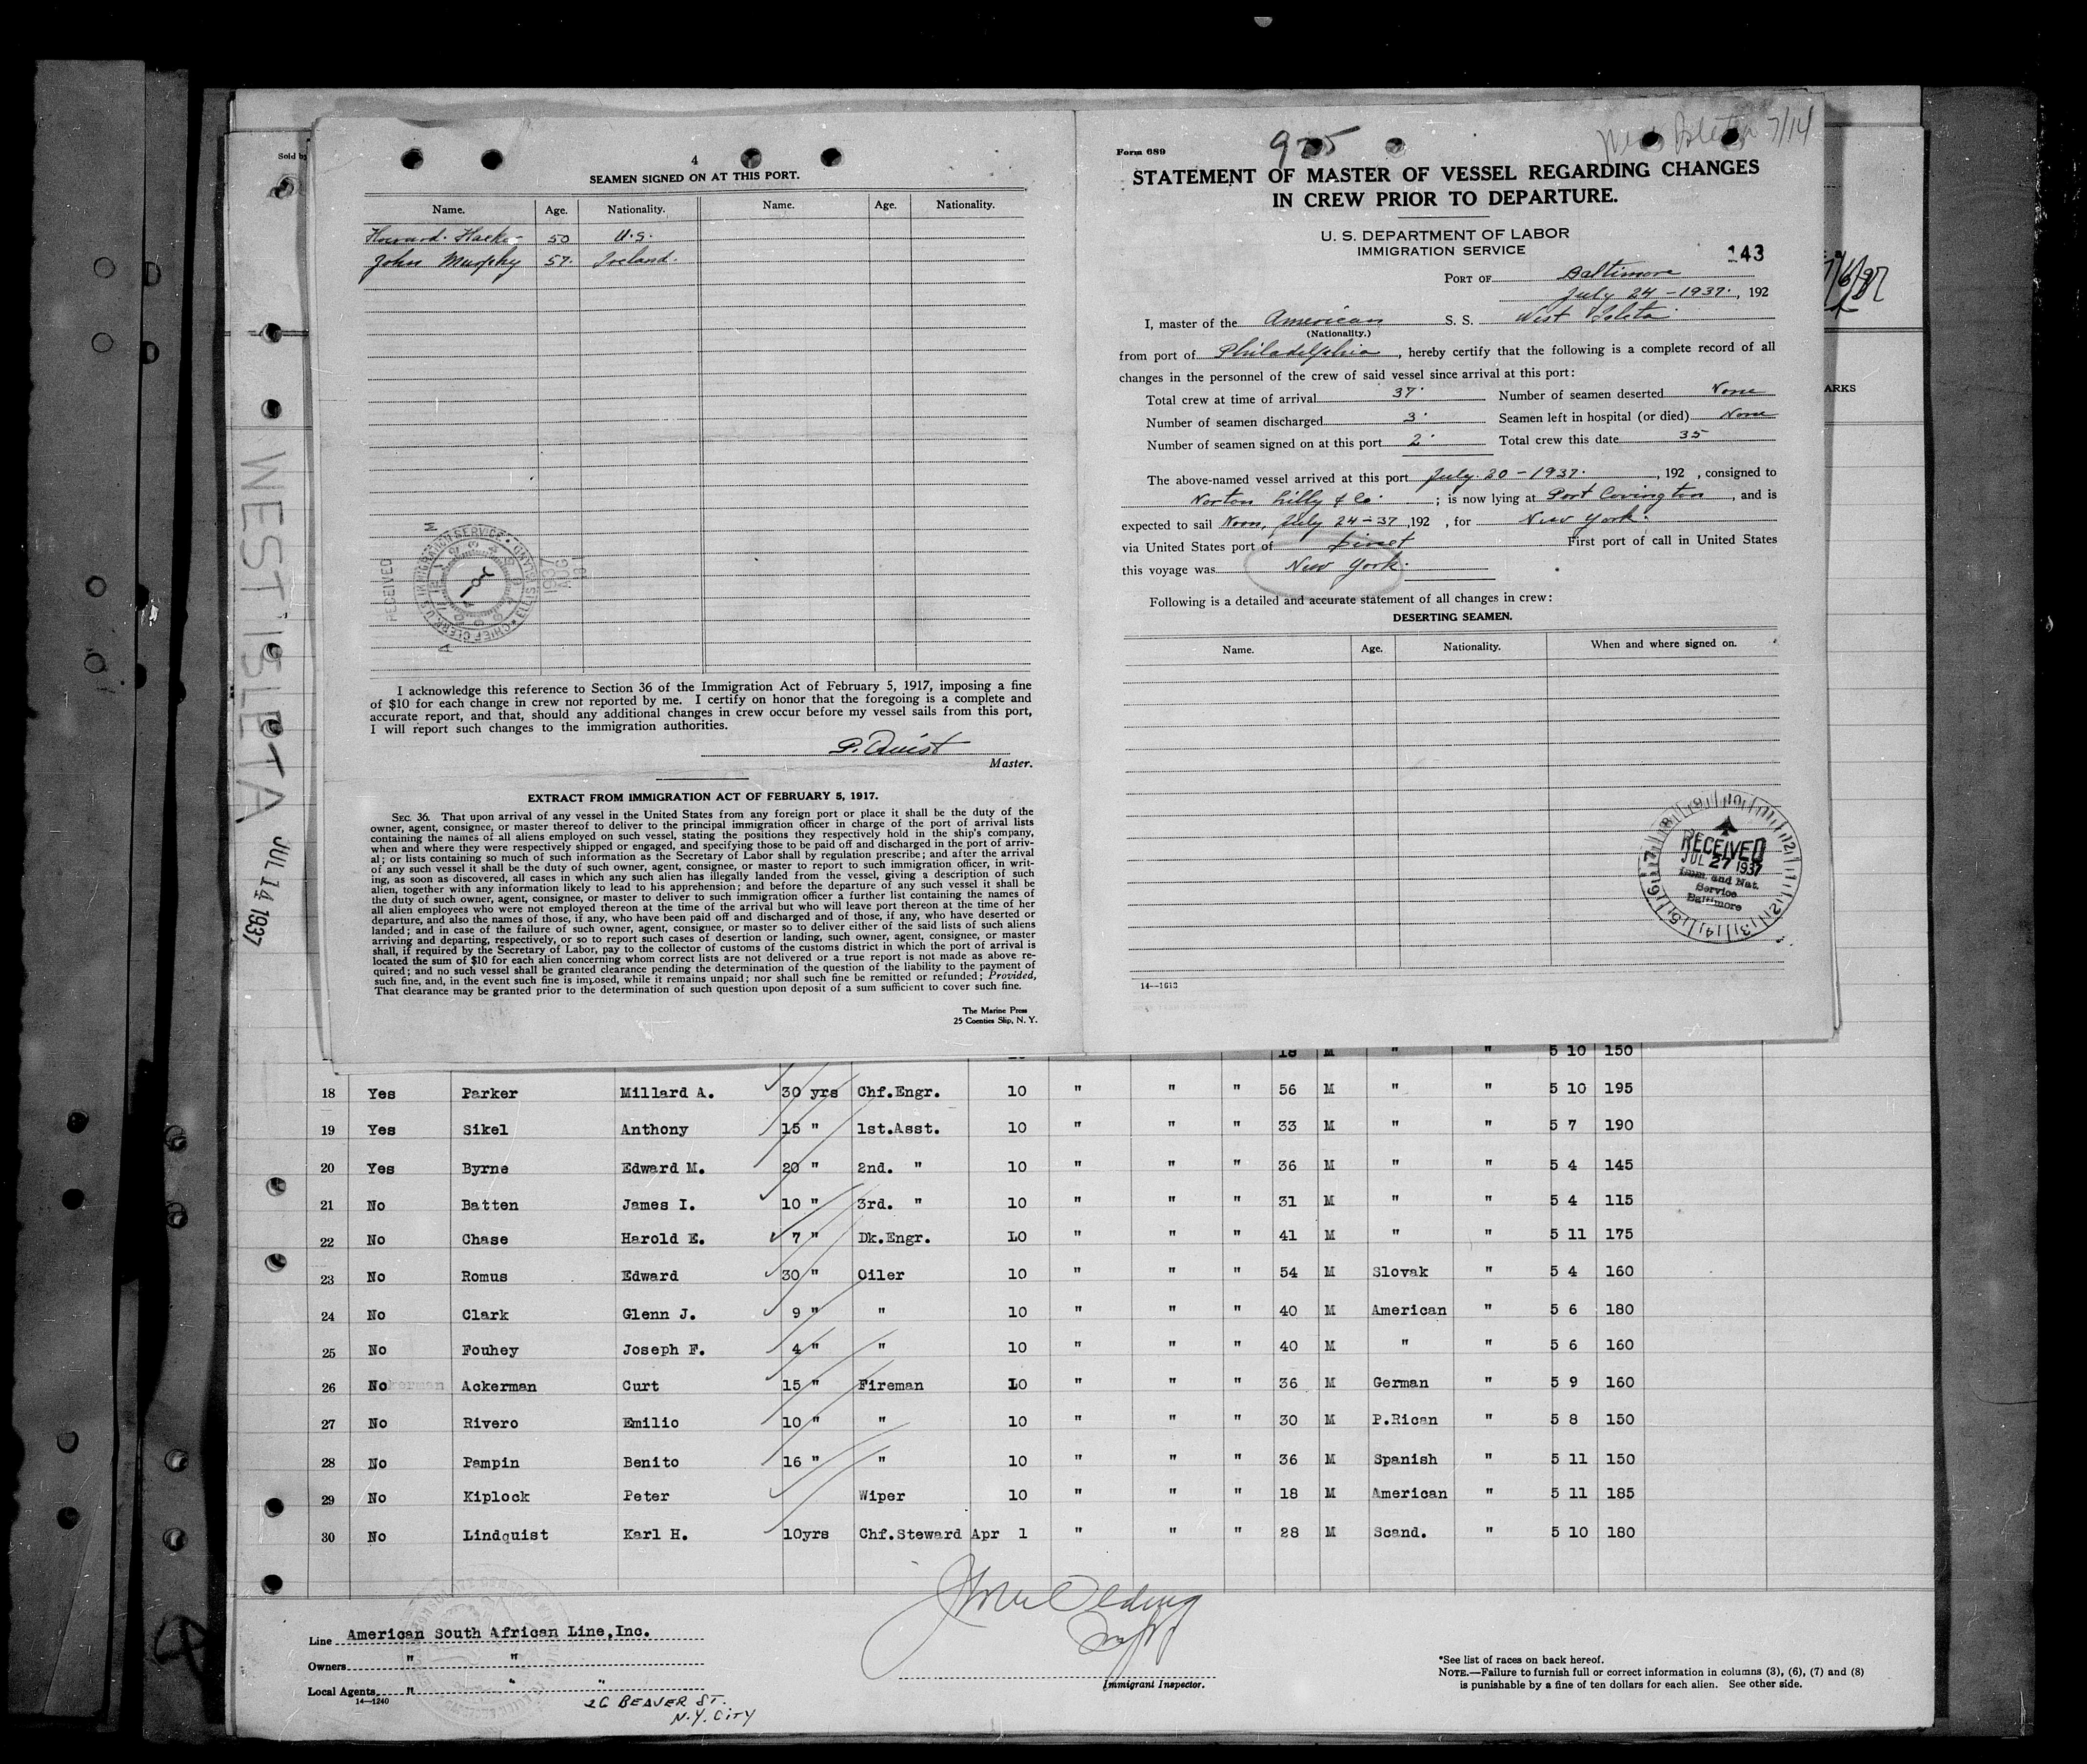 Sold by
4
SEAMEN SIGNED ON AT THIS PORT.
Name. Age. Nationality. Name. Age. Nationality.
Howard. 50 U.S.
John Murphy 57. Ireland.
RECEIVED
CHIEF CLERK U.S. IMMIGRATION SERVICE • ELLIS ISLAND
M
A
I acknowledge this reference to Section 36 of the Immigration Act of February 5, 1917, imposing a fine
of $10 for each change in crew not reported by me. I certify on honor that the foregoing is a complete and
accurate report, and that, should any additional changes in crew occur before my vessel sails from this port,
I will report such changes to the immigration authorities.
P. Quist
Master.
EXTRACT FROM IMMIGRATION ACT OF FEBRUARY 5, 1917.
SEC. 36. That upon arrival of any vessel in the United States from any foreign port or place it shall be the duty of the
owner, agent, consignee, or master thereof to deliver to the principal immigration officer in charge of the port of arrival lists
containing the names of all aliens employed on such vessel, stating the positions they respectively hold in the ship's company,
when and where they were respectively shipped or engaged, and specifying those to be paid off and discharged in the port of arriv-
al; or lists containing so much of such information as the Secretary of Labor shall by regulation prescribe; and after the arrival
of any such vessel it shall be the duty of such owner, agent, consignee, or master to report to such immigration officer, in writ-
ing, as soon as discovered, all cases in which any such alien has illegally landed from the vessel, giving a description of such
alien, together with any information likely to lead to his apprehension; and before the departure of any such vessel it shall be
the duty of such owner, agent, consignee, or master to deliver to such immigration officer a further list containing the names of
all alien employees who were not employed thereon at the time of the arrival but who will leave port thereon at the time of her
departure, and also the names of those, if any, who have been paid off and discharged and of those, if any, who have deserted or
landed; and in case of the failure of such owner, agent, consignee, or master so to deliver either of the said lists of such aliens
arriving and departing, respectively, or so to report such cases of desertion or landing, such owner, agent, consignee, or master
shall, if required by the Secretary of Labor, pay to the collector of customs of the customs district in which the port of arrival is
located the sum of $10 for each alien concerning whom correct lists are not delivered or a true report is not made as above re-
quired; and no such vessel shall be granted clearance pending the determination of the question of the liability to the payment of
such fine, and, in the event such fine is imposed, while it remains unpaid; nor shall such fine be remitted or refunded; Provided,
That clearance may be granted prior to the determination of such question upon deposit of a sum sufficient to cover such fine.
The Marine Press
25 Coenties Slip, N. Y.
WEST ISLETA JUL 14 1937
Form 689
975
West Isleta 7/14
STATEMENT OF MASTER OF VESSEL REGARDING CHANGES
IN CREW PRIOR TO DEPARTURE.
U. S. DEPARTMENT OF LABOR
IMMIGRATION SERVICE
143
PORT OF Baltimore
July 24 - 1937., 192
I, master of the American S. S. West Isleta
(Nationality.)
from port of Philadelphia, hereby certify that the following is a complete record of all
changes in the personnel of the crew of said vessel since arrival at this port:
Total crew at time of arrival 37 Number of seamen deserted None
Number of seamen discharged 3 Seamen left in hospital (or died) None
Number of seamen signed on at this port 2 Total crew this date 35
The above-named vessel arrived at this port July. 20 - 1937., 192 , consigned to
Norton Lilly & Co. ; is now lying at Port Covington, and is
expected to sail Noon, July 24 - 37, 192 , for New York.
via United States port of Direct First port of call in United States
this voyage was New York.
Following is a detailed and accurate statement of all changes in crew:
DESERTING SEAMEN.
Name. Age. Nationality. When and where signed on.
RECEIVED
JUL 27 1937
Imm. and Nat.
Service
Baltimore
14—1613
ARKS
18 M " " 5 10 150
18 Yes Parker Millard A. 30 yrs Chf.Engr. 10 " " " 56 M " " 5 10 195
19 Yes Sikel Anthony 15 " 1st.Asst. 10 " " " 33 M " " 5 7 190
20 Yes Byrne Edward M. 20 " 2nd. " 10 " " " 36 M " " 5 4 145
21 No Batten James I. 10 " 3rd. " 10 " " " 31 M " " 5 4 115
22 No Chase Harold E. 7 " Dk.Engr. 10 " " " 41 M " " 5 11 175
23 No Romus Edward 30 " Oiler 10 " " " 54 M Slovak " 5 4 160
24 No Clark Glenn J. 9 " " 10 " " " 40 M American " 5 6 180
25 No Fouhey Joseph F. 4 " " 10 " " " 40 M " " 5 6 160
26 No Ackerman Curt 15 " Fireman 10 " " " 36 M German " 5 9 160
27 No Rivero Emilio 10 " " 10 " " " 30 M P.Rican " 5 8 150
28 No Pampin Benito 16 " " 10 " " " 36 M Spanish " 5 11 150
29 No Kiplock Peter Wiper 10 " " " 18 M American " 5 11 185
30 No Lindquist Karl H. 10yrs Chf.Steward Apr 1 " " " 28 M Scand. " 5 10 180
Line American South African Line,Inc.
Owners " "
Local Agents " " "
14—1240
26 BEAVER ST.
N.Y. CITY
Immigrant Inspector.
*See list of races on back hereof.
NOTE.—Failure to furnish full or correct information in columns (3), (6), (7) and (8)
is punishable by a fine of ten dollars for each alien. See other side.